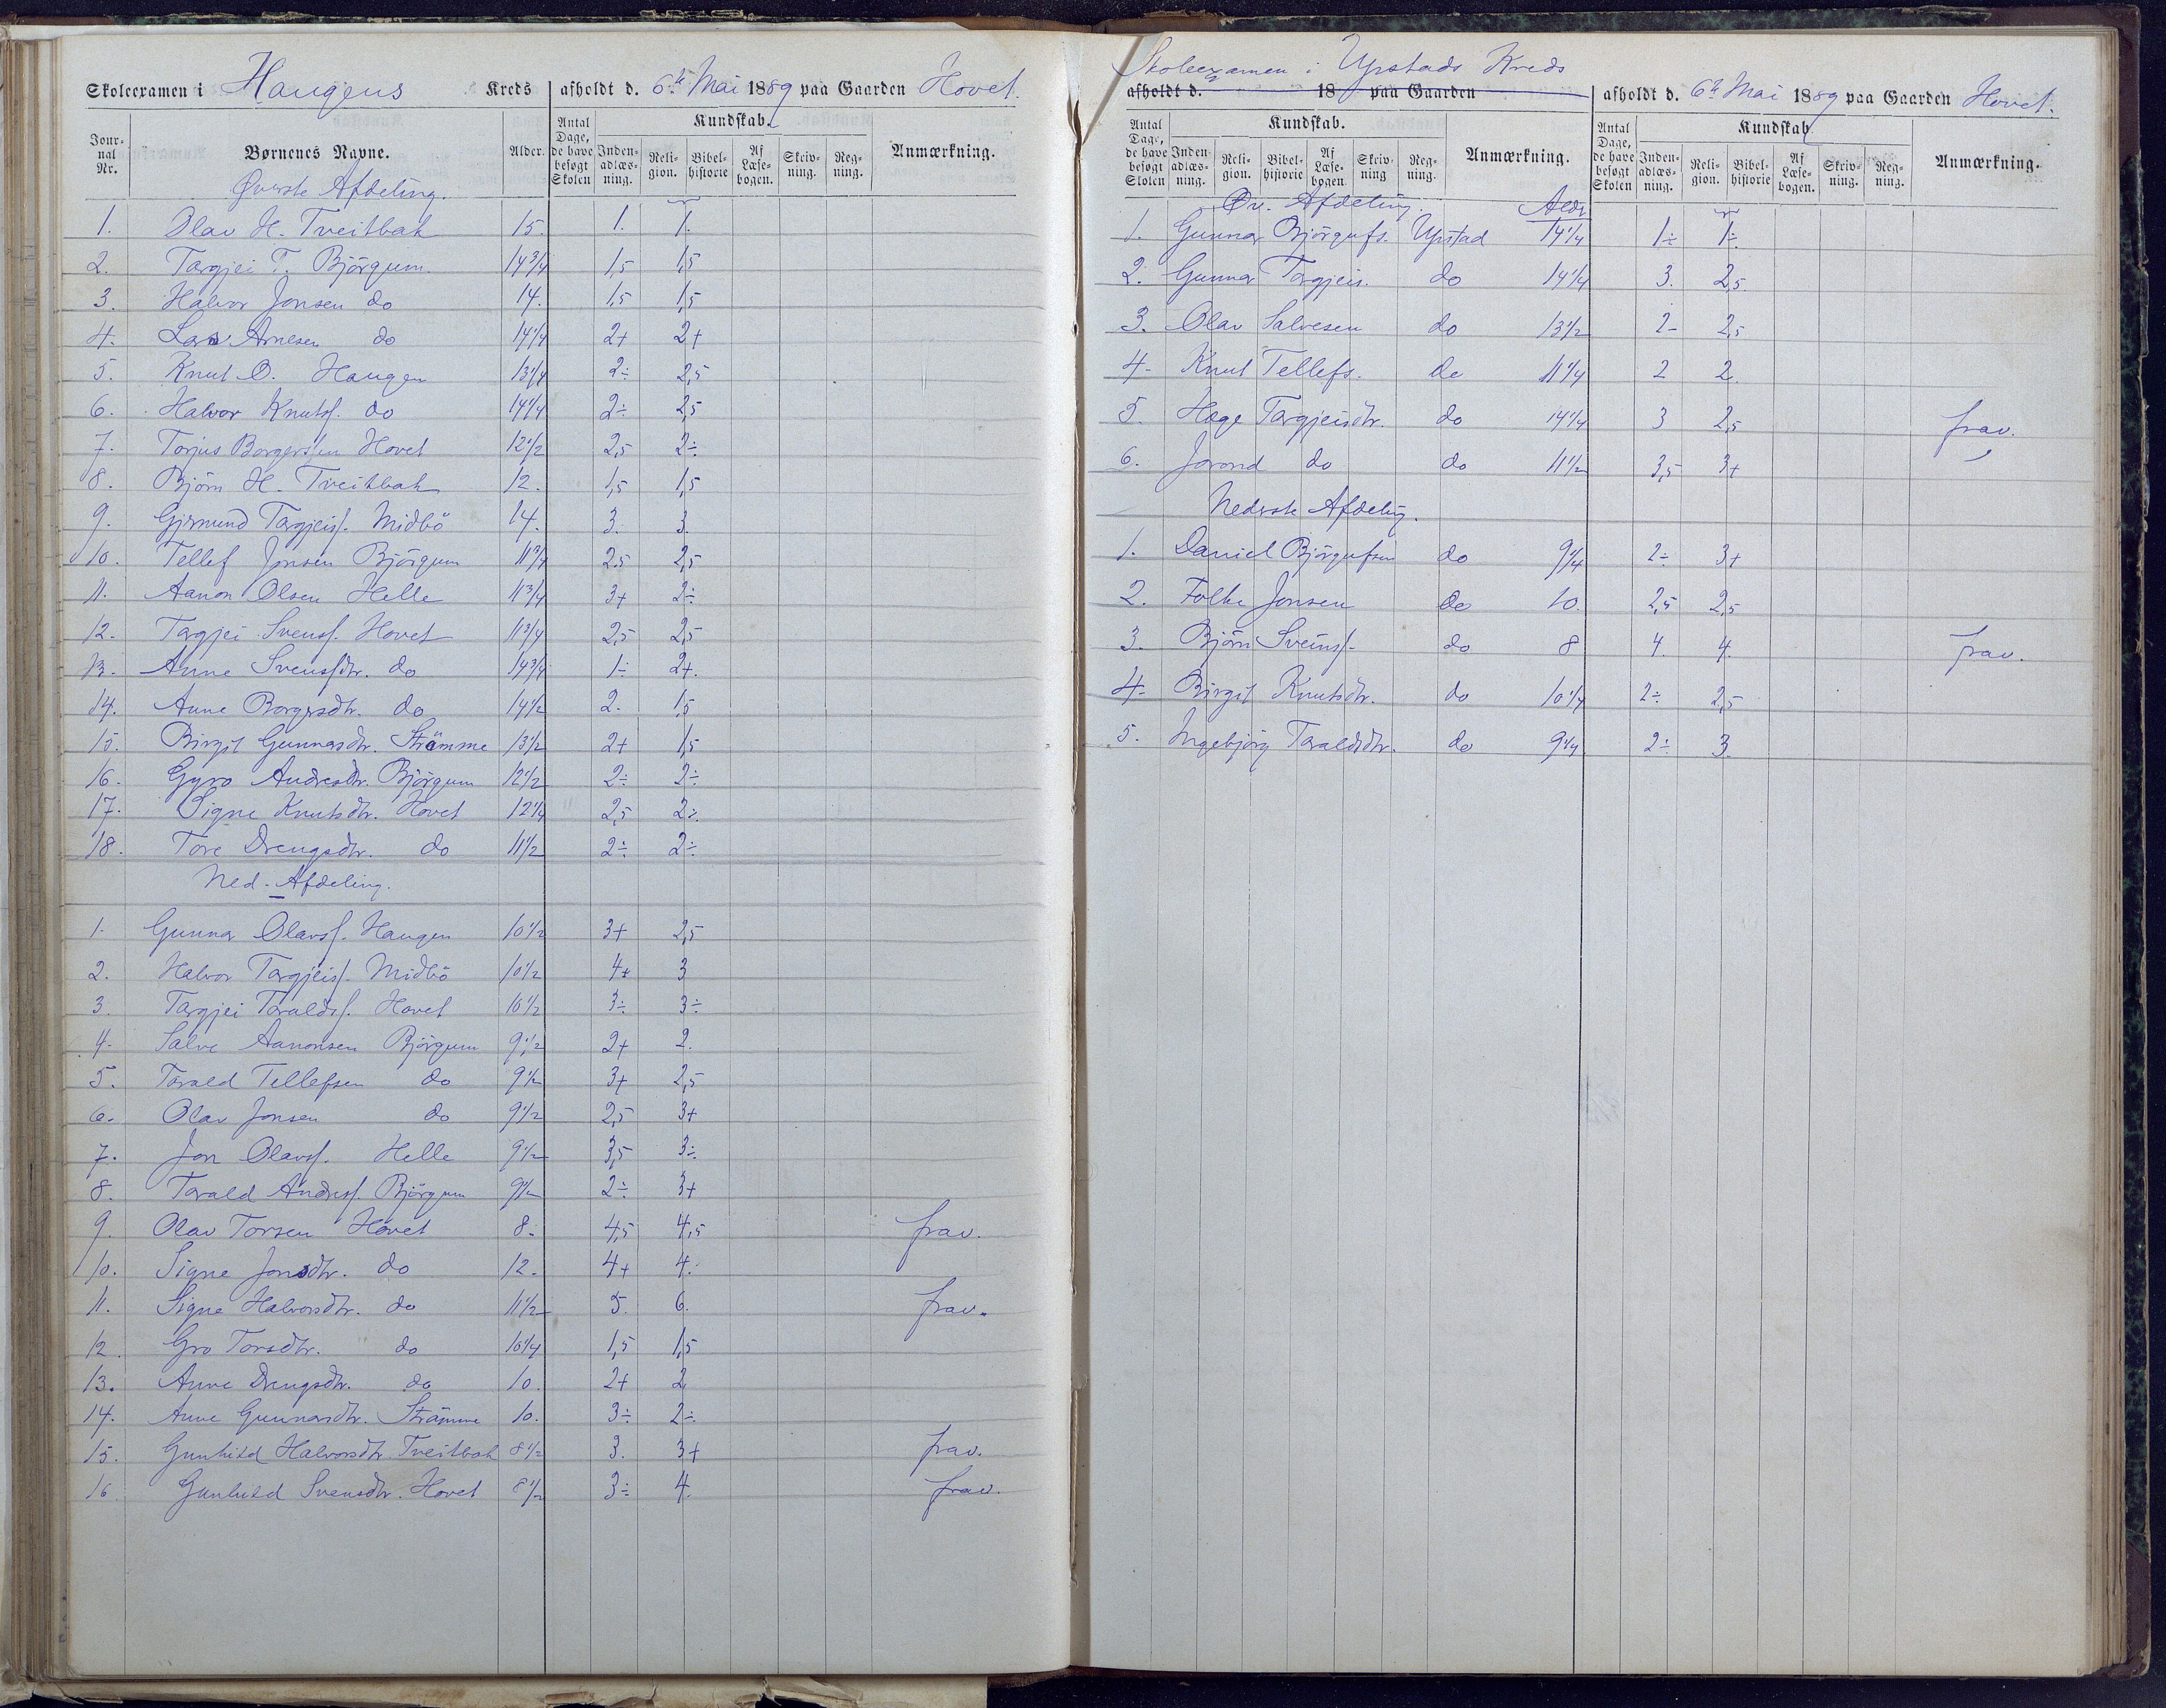 Skoleexamen i Haugens Kreds afholdt d. 6te Mai 1889 paa Gaarden Hovet.
Journal Nr. Børnenes Navne. Alder. Antal Dage, de have besøgt Skolen Kundskab. Indenadlæsning. Religion. Bibelhistorie Af Læsebogen. Skrivning. Regning. Anmærkning.
Øverste Afdeling.
1. Olav H. Tveitbak 15. 1. 1.
2. Targjei T. Björgum 14 3/4 1,5 1,5
3. Halvor Jonsen do 14. 1,5 1,5
4. Lars Arnesen do 14 1/4 2+ 2+
5. Knut O. Haugen 13 1/4 2÷ 2,5
6. Halvor Knutsf. do 14 1/4 2÷ 2,5
7. Torjus Borgerssen Hovet 12 1/2 2,5 2÷
8. Björn H. Tveitbak 12. 1,5 1,5
9. Gjermund Targjeisf. Midbö 14. 3. 3.
10. Tellef Jonsen Björgum 11 3/4 2.5 2,5
11. Aanon Olsen Helle 11 3/4 3+ 2÷
12. Targjei Svensf. Hovet 11 3/4 2,5 2,5
13. Anne Svensdtr. do 14 3/4 1÷ 2+.
14. Anne Borgersdtr. do 14 1/2 2. 1,5
15. Birgit Gunnarsdtr. Strömme 13 1/2 2+ 1,5
16. Gyro Andresdtr. Björgum 12 1/2 2÷ 2÷
17. Signe Knutsdtr. Hovet 12 1/4 2,5 2÷.
18. Tore Drengsdtr. do 11 1/2 2÷ 2÷
Ned. Afdeling.
1. Gunnar Olavsf. Haugen 10 1/2 3+ 2,5
2. Halvor Targjeisf. Midbö 10 1/2 4+ 3
3. Targjei Taraldsf. Hovet 10 1/2 3÷ 3÷
4. Salve Aanonsen Björgum 9 1/2 2+ 2.
5. Tarald Tellefsen do 9 1/2 3+ 2,5
6. Olav Jonsen do 9 1/2 2,5 3+
7. Jon Olavsf. Helle 9 1/2 3,5 3÷
8. Tarald Andresf. Björgum 9 1/2 2÷ 3+
9. Olav Torsen Hovet 8. 4,5 4,5 frav.
10. Signe Jonsdtr. do 12. 4+ 4.
11. Signe Halvorsdtr. do 11 1/2 5. 6. frav.
12. Gro Torsdtr. do 10 1/4 1,5 1,5
13. Anne Drengsdtr. do 10. 2+ 2
14. Anne Gunnarsdtr. Strömme 10. 3÷ 2÷
15. Gunhild Halvorsdtr Tveitbak 8 1/2 3. 3+ frav.
16 Gunhild Svensdtr. Hovet 8 1/2 3÷ 4. frav.
Skoleexamen i Upstads Kreds
afholdt d. 18 paa Gaarden afholdt d. 6te Mai 1889 paa Gaarden Hovet.
Antal Dage, de have besøgt Skolen Kundskab. Indenadlæsning. Religion. Bibelhistorie Af Læsebogen. Skrivning Regning. Anmærkning. Antal Dage, de have besøgt Skolen Kundskab. Indenadlæsning. Religion. Bibelhistorie Af Læsebogen. Skrivning. Regning. Anmærkning.
Öv. Afdeling.
1. Gunnar Björgufs. Upstad 14 1/4 1÷ 1÷
2. Gunnar Targjeis. do 14 1/4 3. 2,5
3. Olav Salvesen do 13 1/2 2- 2,5
4. Knut Tellefs. do 11 1/4 2 2.
5. Hage Targjeisdtr. do 14 1/4 3 2,5 frav.
6. Jorond do do 11 1/2 3,5 3+
Nederste Afdeling.
1. Daniel Björgufsen do 9 1/4 2÷ 3+
2. Folke Jonsen do 10. 2,5 2,5
3. Björn Sveinsf. do 8 4. 4. frav.
4. Birgit Knutsdtr. do 10 1/4 2÷ 2,5
5. Ingebjörg Taraldsdtr. do 9 1/4 2÷ 3.